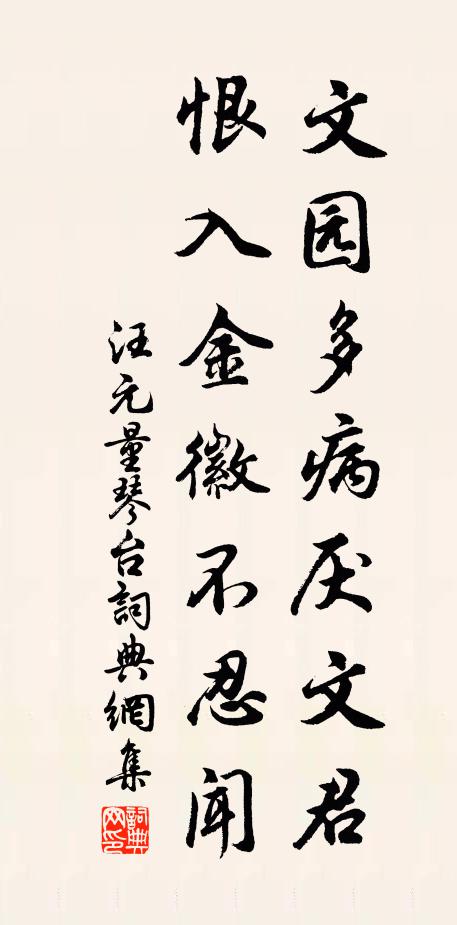 文园多病厌文君
恨入金徽不忍闻
汪元量琴台詞典網集
詞典网印